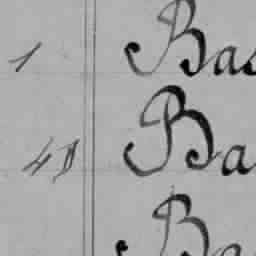 1 Bas
41 Ba
Ba